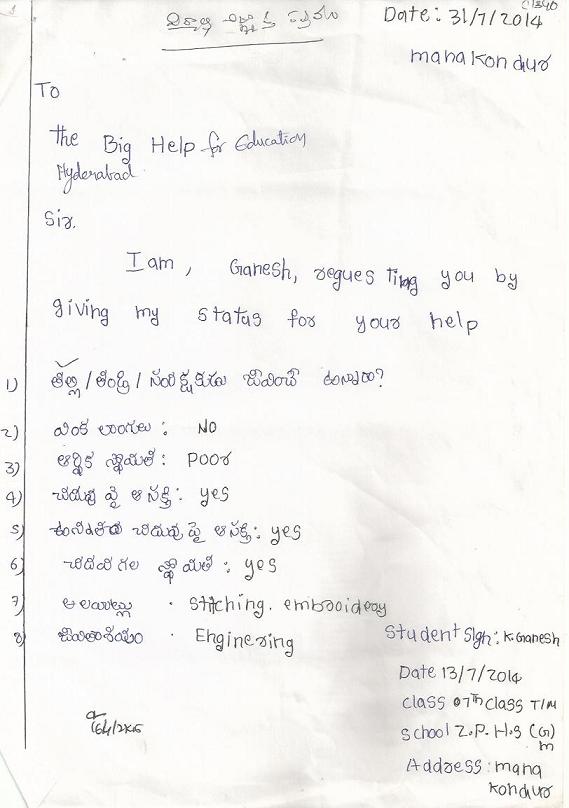 విద్యార్థి విజ్ఞప్తి పత్రము
Date: 31/7/2014
manakondur
To
The Big Help for Education
Hyderabad
Sir.
I am, Ganesh, reques Ting you by
giving my status for your help
1) తల్లి / తండ్రి / సంరక్షకుడు జీవించే ఉన్నారా?
2) వింక లాంగులు : NO
3) ఆర్థిక స్థాయితి : POOR
4) చదువు పై ఆసక్తి : yes
5) ఉన్నతమైన చదువు పై ఆసక్తి : yes
6) చదవగల స్థాయితి : yes
7) అలవాట్లు . Stitching. embrooidery
8) జీవితాశయం . Enginering
Student Sigh: K. Ganesh
Date 13/7/2014
Class 07th Class T/M
School Z.P.H.S (G)
m
Address: mana
kondur